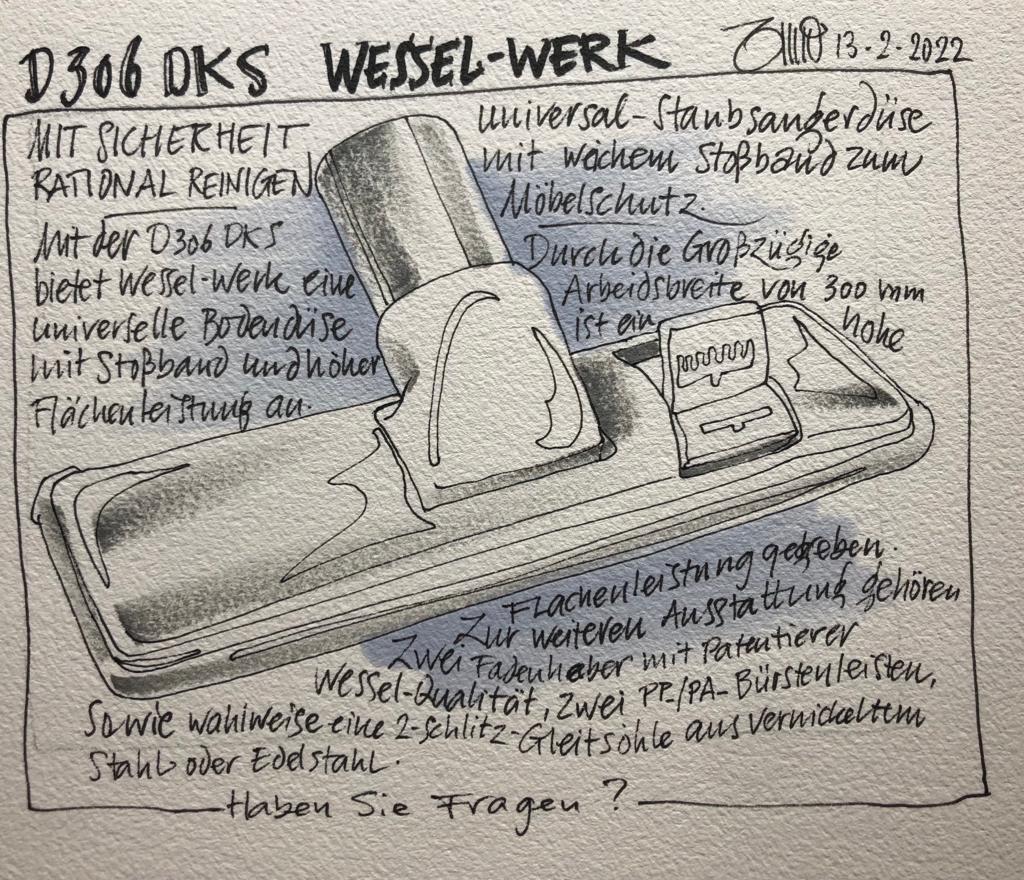 D306 DKS WESSEL-WERK 13-2-2022
MIT SICHERHEIT
RATIONAL REINIGEN
Mit der D306 DKS
bietet Wessel-Werk eine
universelle Bodendüse
mit Stoßband und hoher
Flächenleistung an.
universal-Staubsaugerdüse
mit weichem Stoßband zum
Möbelschutz.
Durch die Großzügige
Arbeidsbreite von 300 mm
ist ein hohe
Flächenleistung gegeben.
Zur weiteren Ausstattung gehören
Zwei Fadenheber mit Patentierer
Wessel-Qualität, Zwei PP-/PA-Bürstenleisten,
Sowie wahlweise eine 2-Schlitz-Gleitsohle aus vernickeltem
Stahl oder Edelstahl.
Haben Sie Fragen?